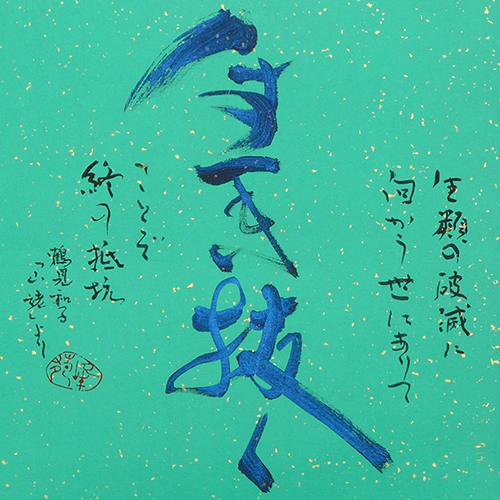 生類の破滅に
向かう世にありて
生き抜く
ことぞ
終の抵抗
鶴見和子
「山姥」より